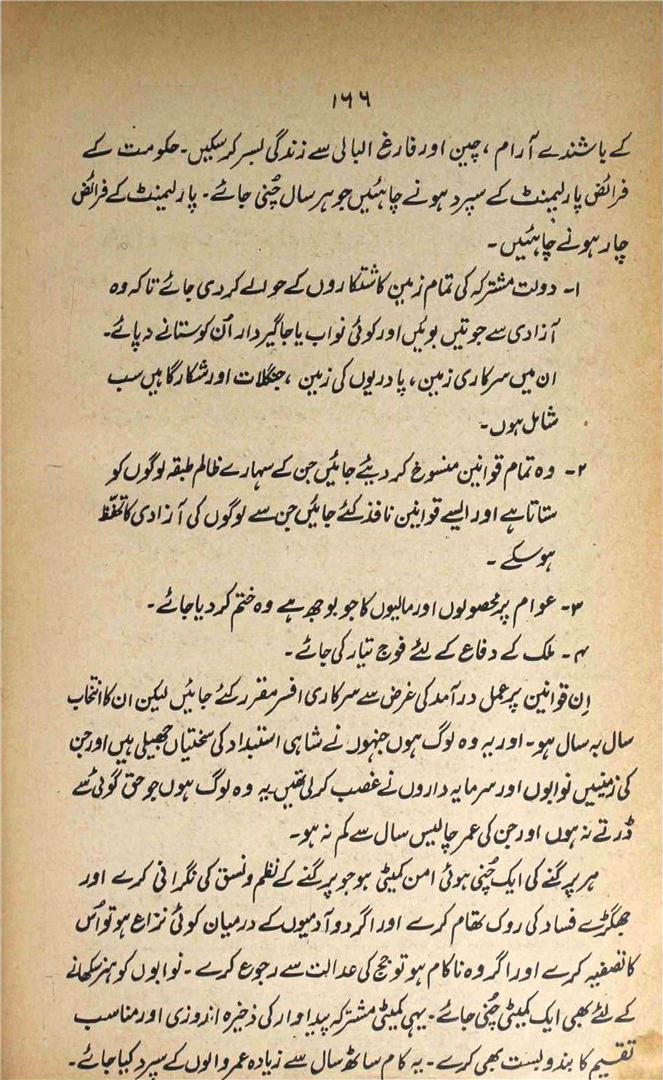 ۱۶۶
کے باشندے آرام، چین اور فارغ البالی سے زندگی بسر کر سکیں۔ حکومت کے
فرائض پارلیمنٹ کے سپرد ہونے چاہئیں جو ہر سال چُنی جائے۔ پارلیمنٹ کے فرائض
چار ہونے چاہئیں۔
۱۔ دولت مشترکہ کی تمام زمین کاشتکاروں کے حوالے کر دی جائے تاکہ وہ
آزادی سے جوتیں بوئیں اور کوئی نواب یا جاگیردار اُن کو ستانے نہ پائے۔
ان میں سرکاری زمین، پادریوں کی زمین، جنگلات اور شکارگاہیں سب
شامل ہوں۔
۲۔ وہ تمام قوانین منسوخ کر دیئے جائیں جن کے سہارے ظالم طبقہ لوگوں کو
ستاتا ہے اور ایسے قوانین نافذ کئے جائیں جن سے لوگوں کی آزادی کا تحفّظ
ہو سکے۔
۳۔ عوام پر محصولوں اور مالیوں کا جو بوجھ ہے وہ ختم کر دیا جائے۔
۴۔ ملک کے دفاع کے لئے فوج تیار کی جائے۔
اِن قوانین پر عمل درآمد کی غرض سے سرکاری افسر مقرر کئے جائیں لیکن ان کا انتخاب
سال بہ سال ہو۔ اور یہ وہ لوگ ہوں جنہوں نے شاہی استبداد کی سختیاں جھیلی ہیں اور جن
کی زمینیں نوابوں اور سرمایہ داروں نے غصب کر لی تھیں یہ وہ لوگ ہوں جو حق گوئی سے
ڈرتے نہ ہوں اور جن کی عمر چالیس سال سے کم نہ ہو۔
ہر پرگنے کی ایک چُنی ہوئی امن کمیٹی ہو جو پرگنے کے نظم و نسق کی نگرانی کرے اور
جھگڑے فساد کی روک تھام کرے اور اگر دو آدمیوں کے درمیان کوئی نزاع ہو تو اُس
کا تصفیہ کرے اور اگر وہ ناکام ہو تو جج کی عدالت سے رجوع کرے۔ نوابوں کو ہنر سکھانے
کے لئے بھی ایک کمیٹی چُنی جائے۔ یہی کمیٹی مشترکہ پیداوار کی ذخیرہ اندوزی اور مناسب
تقسیم کا بندوبست بھی کرے۔ یہ کام ساٹھ سال سے زیادہ عمر والوں کے سپرد کیا جائے۔